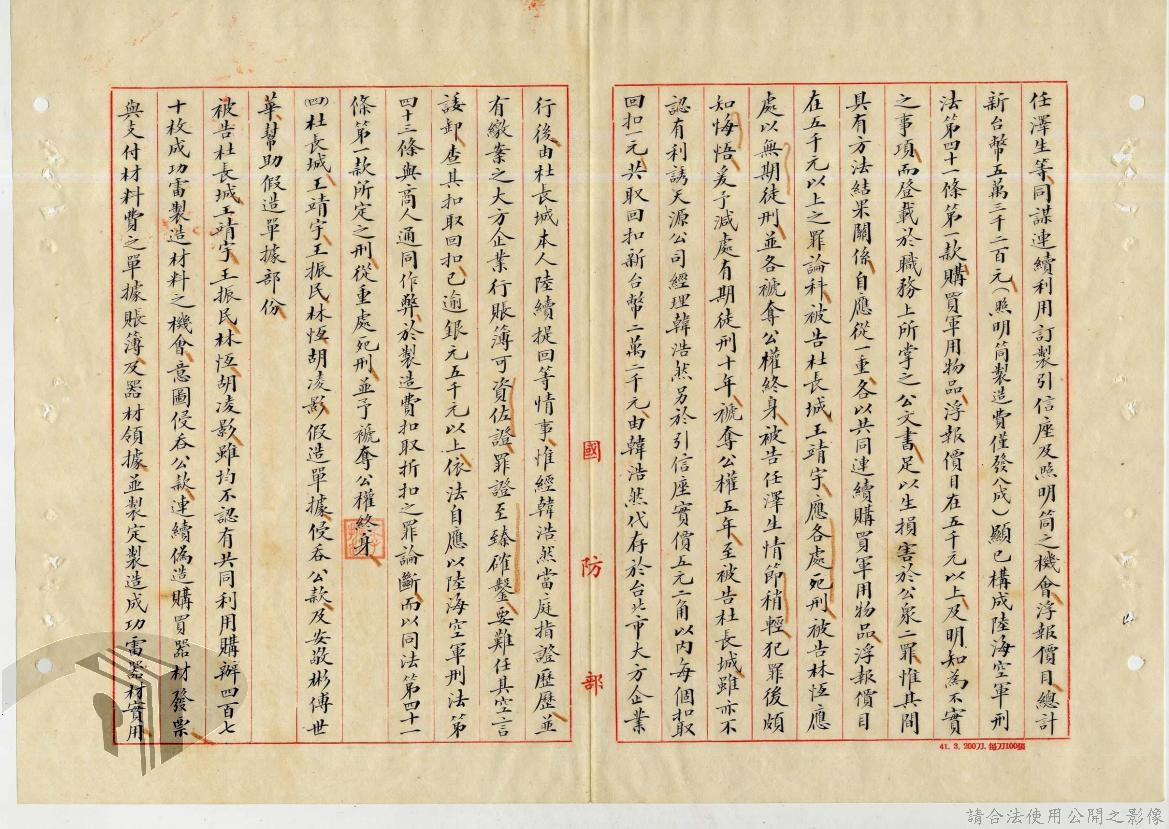 任澤生等同謀連續利用訂製引信座及照明筒之機會浮報價目總計
新台幣五萬三千二百元(照明筒製造費僅發八成)顯已構成陸海空軍刑
法第四十一條第一款購買軍用物品浮報價目在五千元以上及明知為不實
之事項而登載於職務上所掌之公文書足以生損害於公衆二罪惟其間
具有方法結果關係自應從一重各以共同連續購買軍用物品浮報價目
在五千元以上之罪論科被告杜長城王靖宇應各處死刑被告林恆應
處以無期徒刑並各褫奪公權終身被告任澤生情節稍輕犯罪後頗
知悔悟爰予減處有期徒刑十年褫奪公權五年至被告杜長城雖亦不
認有利誘天源公司經理韓浩然另於引信座實價五元二角以內每個扣取
回扣一元共取回扣新台幣二萬二千元由韓浩然代存於台北市大方企業
行後由杜長城本人陸續提回等情事惟經韓浩然當庭指證歷歷並
有繳案之大方企業行賬簿可資佐證罪證至臻確鑿要難任其空言
諉卸查其扣取回扣已逾銀元五千元以上依法自應以陸海空軍刑法第
四十三條與商人通同作弊於製造費扣取折扣之罪論斷而以同法第四十一
條第一款所定之刑從重處死刑並予褫奪公權終身
㈣杜長城王靖宇王振民林恆胡凌影假造單據侵吞公款及安敬彬傅世
華幫助假造單據部份
被告杜長城王靖宇王振民林恆胡凌影雖均不認有共同利用購辦四百七
十枚成功雷製造材料之機會意圖侵吞公款連續偽造購買器材發票
與支付材料費之單據賬簿及器材領據並製定製造成功雷器材實用
國防部
41. 3. 200刀. 每刀100張
請合法使用公開之影像